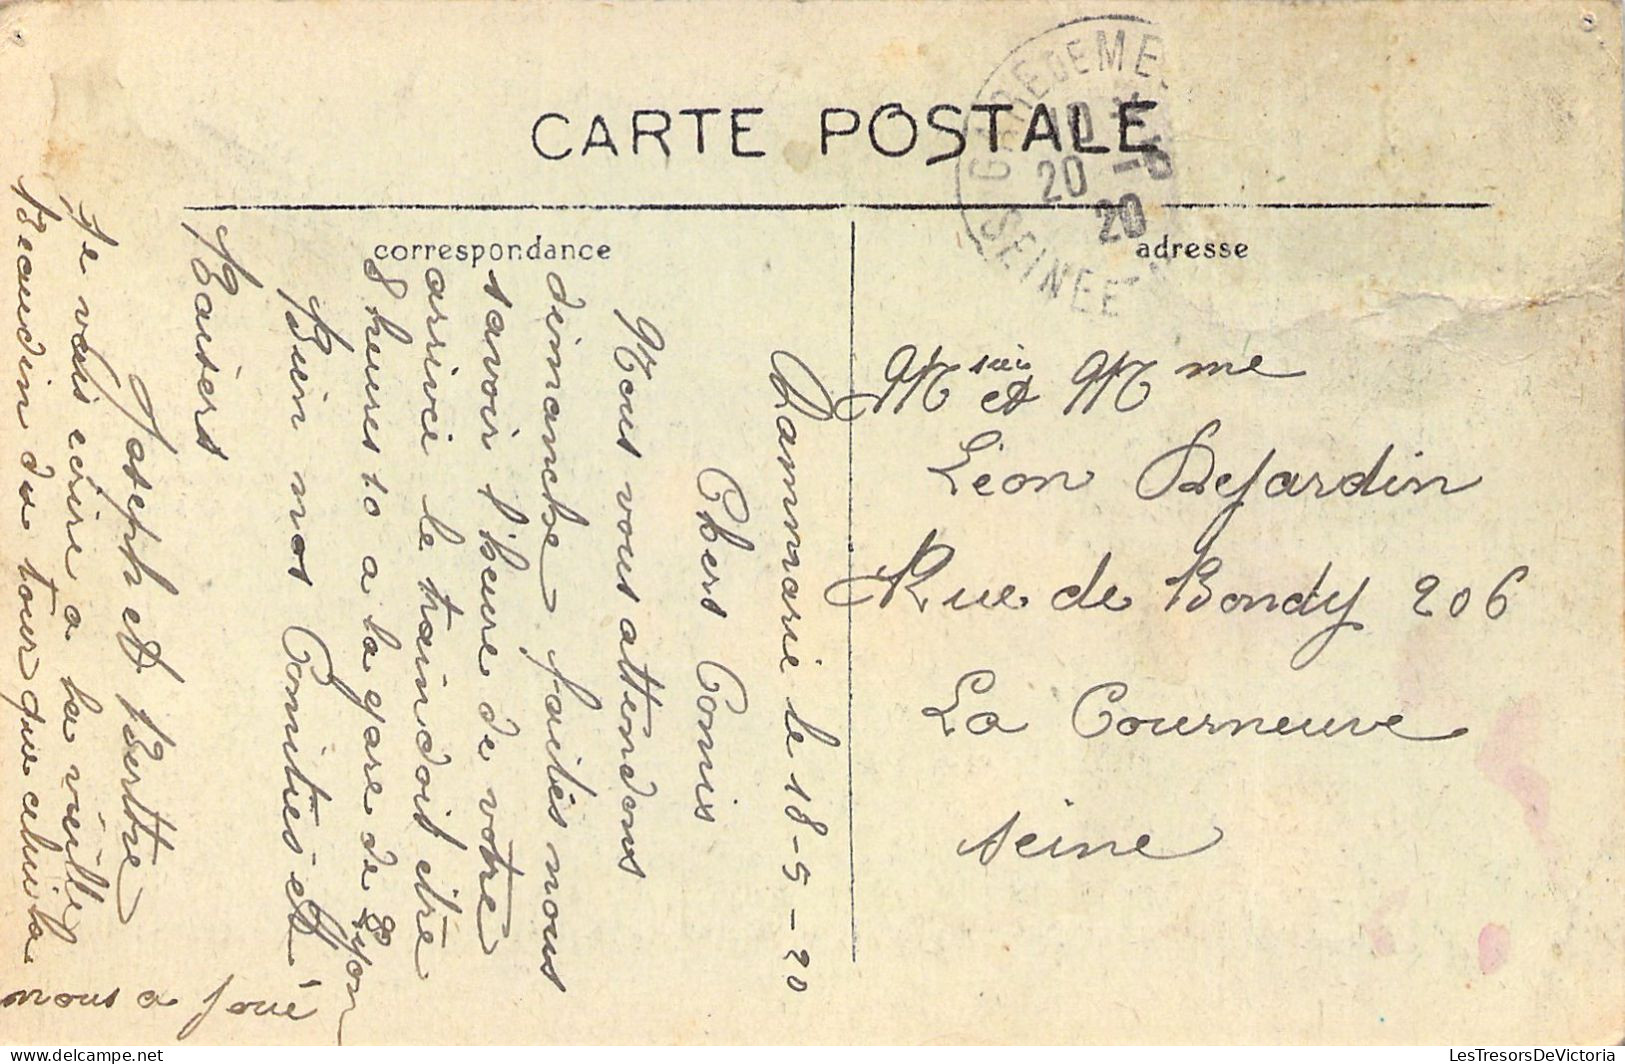 CARTE POSTALE
GARE DE ME
10
20 -5
20
SEINE ET
correspondance
adresse
Dammarie le 18-5-20
Chers Comis
Nous vous attendons
dimanche faites nous
savoir l'heure de votre
arrivée le train doit être
8 heures 10 a la gare de Lyon
Bien nos Comities et
Baisers
Joseph et Berthe
Je vais écrire a la vieille
Beaudin du tour que celui la
nous a joué
Msieu et Mme
Léon Dejardin
Rue de Bondy 206
La Courneuve
Seine
LesTresorsDeVictoria